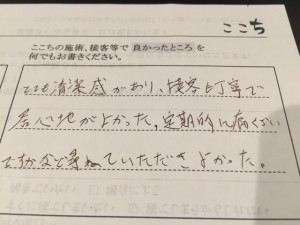 ここち
ここちの施術、接客等で良かったところを
何でもお書きください。
とても清潔感があり、接客も丁寧で
居心地がよかった。定期的に痛くない
ですかなど尋ねていただきよかった。